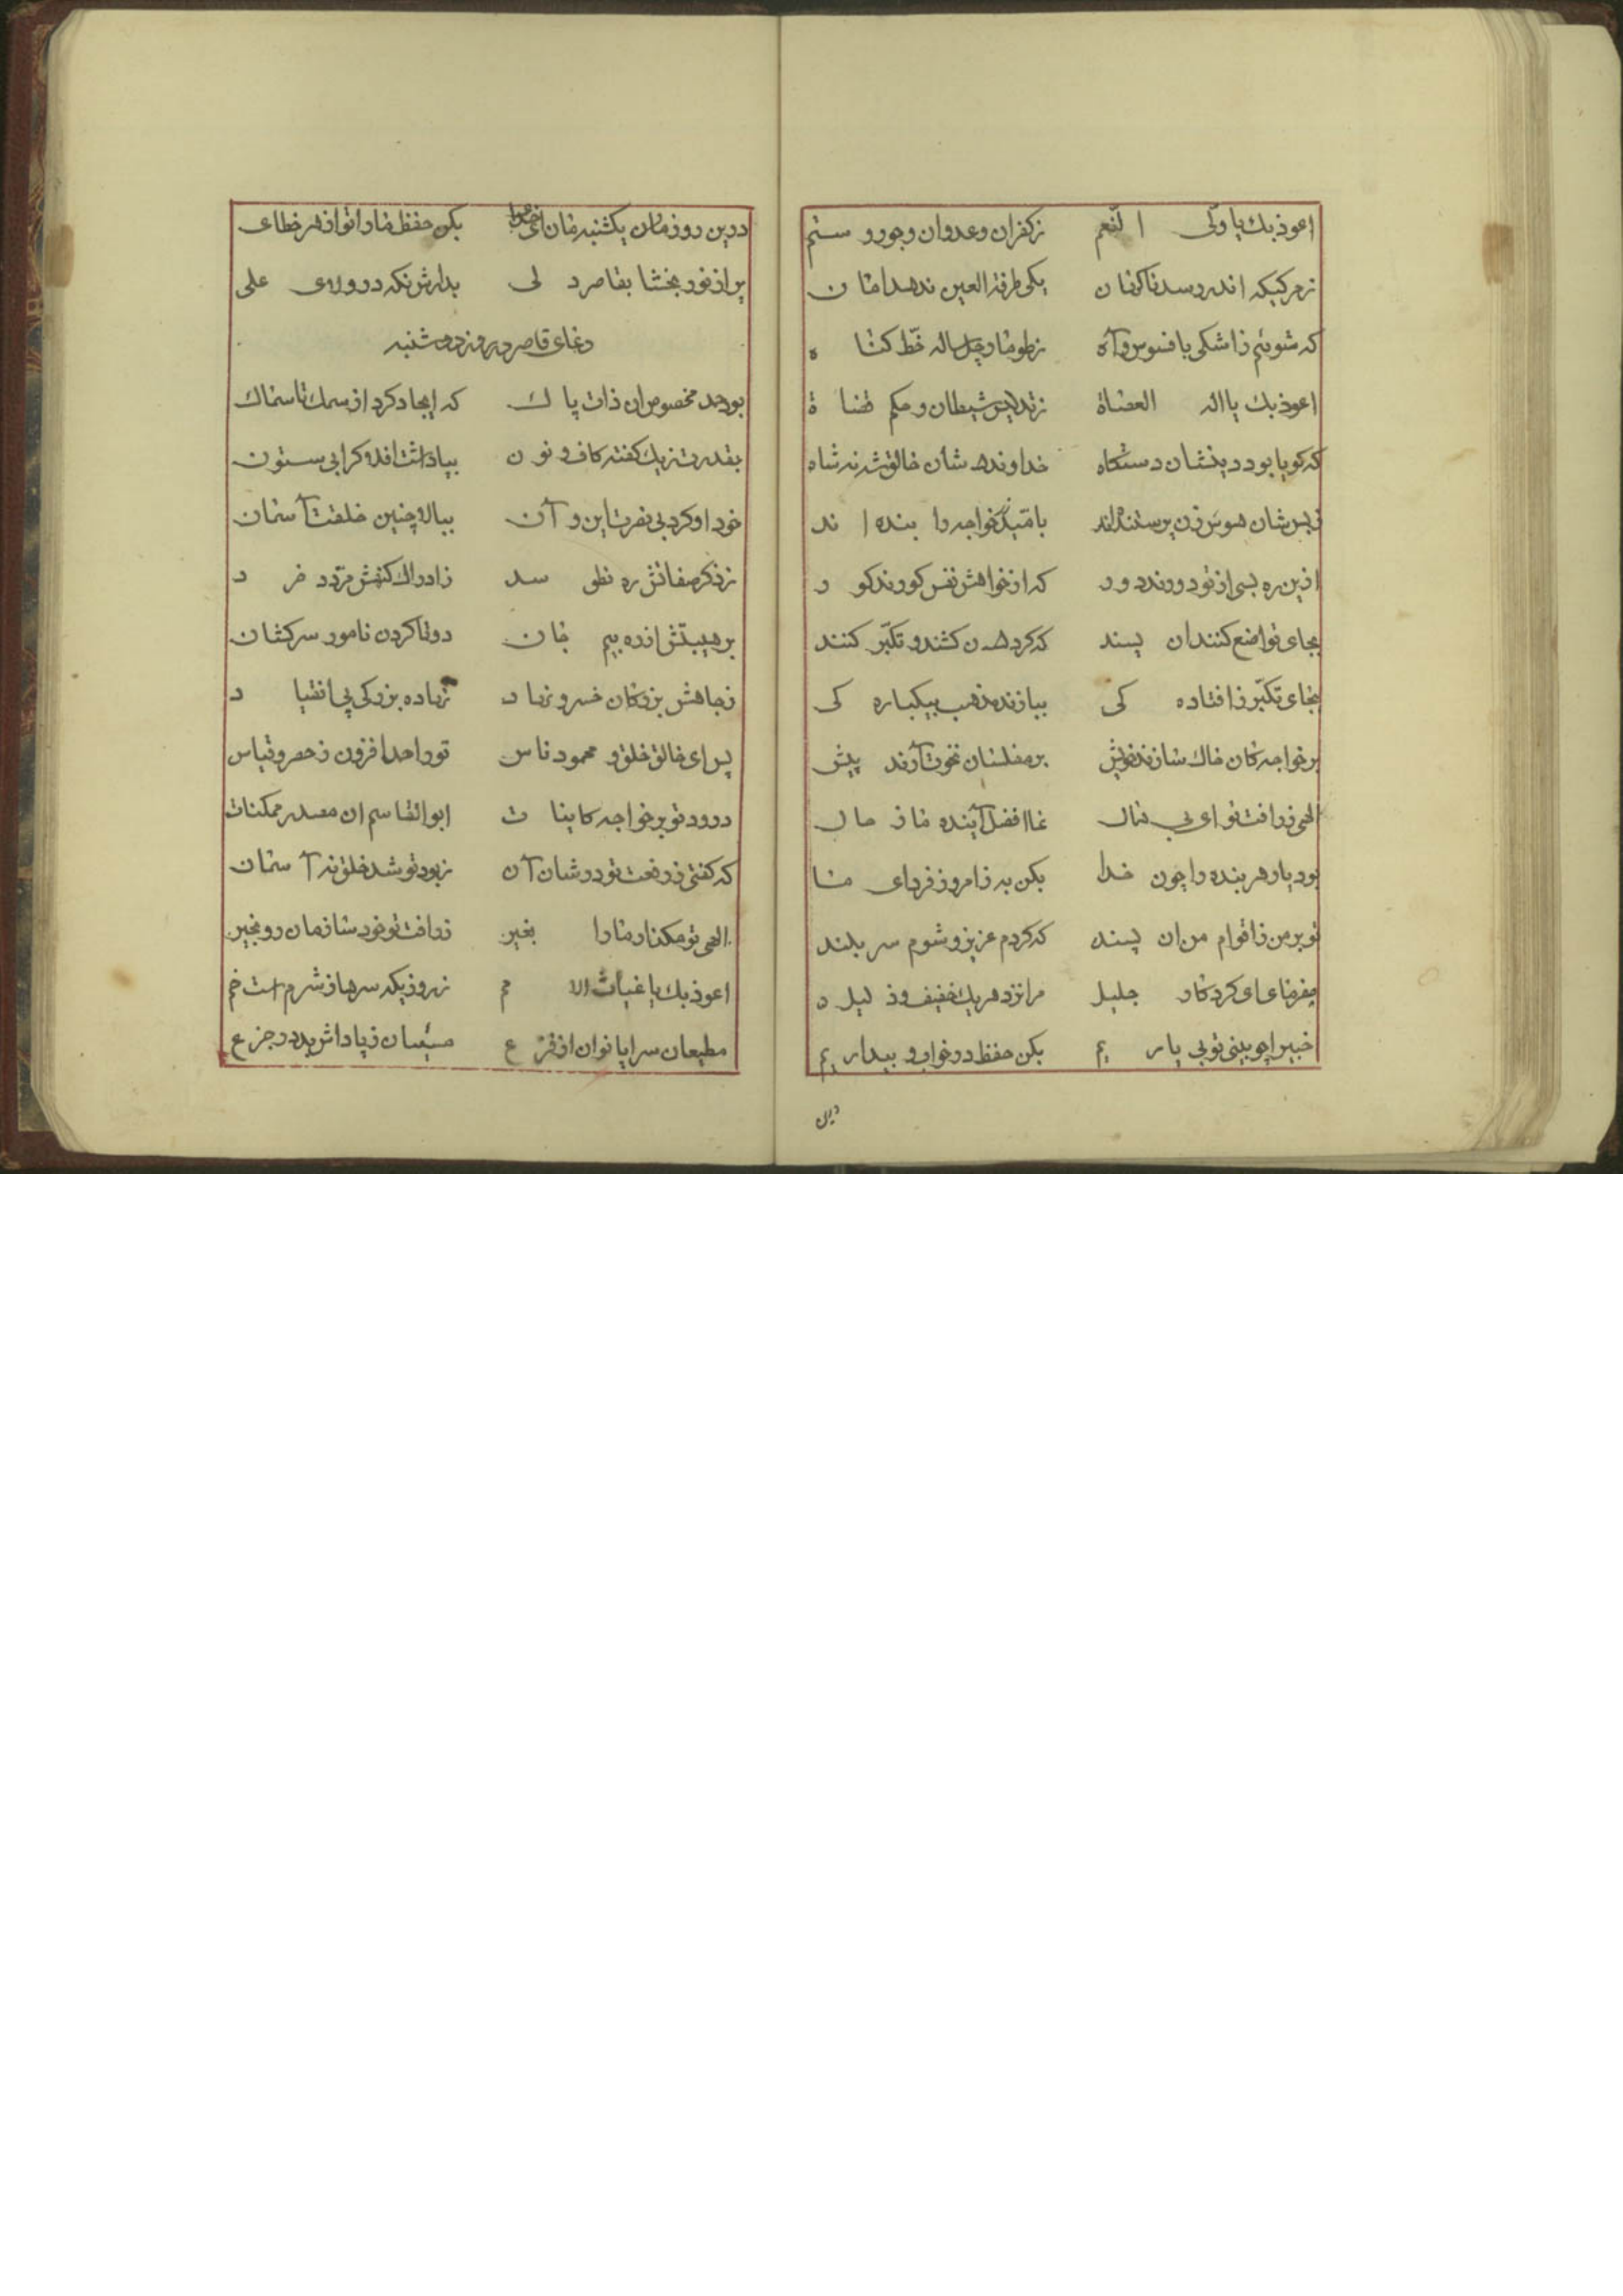 اعوذ بك يا ولّی النّعم زکفران وعدوان وجور و ستم
ز مرکیکه اندر رسد ناکهان یکی طرفة العین ندهد امان
که شوئیم ز اشکی با فسوس و آه ز طومار چل ساله خطّ کناه
اعوذ بك یا اله العضاة ز تدلیس شیطان و حکم قضاة
که کویا بود دینشان دستکاه خداوندهشان خالقش نه شاه
زبس شان هوس زن پرستنده اند بامّید خواجه را بنده اند
ازین ره بسی از تو دورند دور که از خواهش نفس کورند کور
بجای تواضع کنند ان پسند که کردهن کشند و تکبّر کنند
بجای تکبّر ز افتاده کی ببازند مذهب بیکباره کی
بر خواجه کان خاك سازند خویش بر مفلسان نخوت آرند پیش
الهی ز رافت تو ای بی مال غا افضل آینده ما ز حال
بود یار هر بنده را چون خدا بکن به ز امروز فردای ما
تو بر من ز اقوام من ان پسند که کردم عزیز و شوم سر بلند
مفرمای ای کردکار جلیل مرا نزد هر یك خفیف و ذلیل
خبیرا چو بینی تو بی یاریم بکن حفظ در خواب و بیداریم
درین
درین روز مان یکشنبه مان ای خدا بکن حفظ ما را تو از هر خطای
پر از نور بخشا بقاصر دلی بدارش نکه در ولای علی
دعای قاصر در روز دوشنبه
بود حمد مخصوص ان ذات پاك که ایجاد کرد از سمك تا سماك
بقدرت ز یك کفته کاف و نون بپا داشت افلاك را بی ستون
خود او کرد بی نفرت این و آن ببالا چنین خلقت آسمان
ز ذکر صفاتش ره نطق سد ز ادراك کنهش مردد خرد
بر هیبتش از ره بیم جان دوتا کردن نامور سرکشان
ز جاهش بزرکان خسرو نژاد نهاده بزرکی پی انقیاد
پس ای خالق خلق و محمود ناس تو را حمد افزون ز حصر و قیاس
درود تو بر خواجه کاینات ابو القاسم ان مصدر ممکنات
که کفتی ز رفعت تو در شان آن ز بود تو شد خلق نه آسمان
الهی تو مکذار ما را بغیر ز رافت تو خود ساز مان رو بخیر
اعوذ بك یا غیاث الامم ز روزیکه سرها ز شرم است خم
مطیعان سراپا نوان از فزع مسیئان ز پاداش بد در جزع